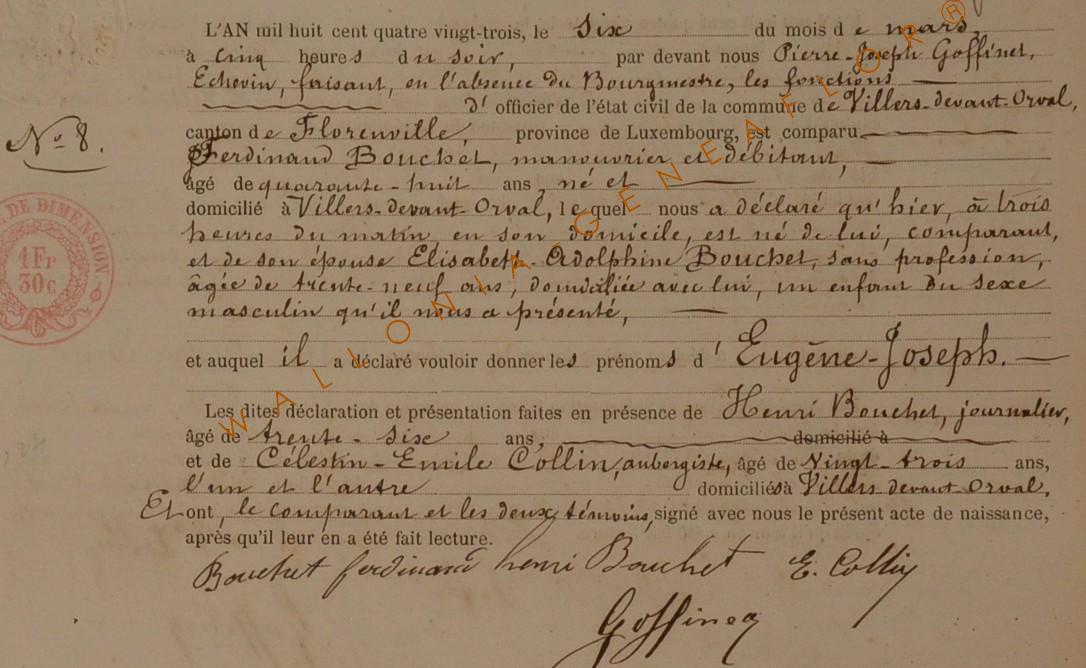 L'AN mil huit cent quatre vingt-trois, le six du mois de mars,
à cinq heures du soir, par devant nous Pierre-Joseph Goffinet,
Echevin, faisant, en l'absence du Bourgmestre, les fonctions
d'officier de l'état civil de la commune de Villers-devant-Orval,
canton de Florenville, province de Luxembourg, est comparu
Nº 8.
Ferdinand Bouchet, manouvrier et débitant,
âgé de quarante-huit ans, né et
domicilié à Villers-devant-Orval, lequel nous a déclaré qu'hier, à trois
heures du matin, en son domicile, est né de lui, comparant,
et de son épouse Elisabeth-Adolphine Bouchet, sans profession,
âgée de trente-neuf ans, domiciliée avec lui, un enfant du sexe
masculin qu'il nous a présenté,
DE DIMENSION
1 Fr
30 c
et auquel il a déclaré vouloir donner les prénoms d'Eugène-Joseph.
Les dites déclaration et présentation faites en présence de Henri Bouchet, journalier,
âgé de trente-six ans, domicilié à
et de Célestin-Emile Collin, aubergiste, âgé de vingt-trois ans,
l'un et l'autre domiciliés à Villers-devant-Orval,
Et ont, le comparant et les deux témoins, signé avec nous le présent acte de naissance,
après qu'il leur en a été fait lecture.
Bouchet ferdinand henri Bouchet E. Collin
Goffinet
WALLONIA-GENEALOR®